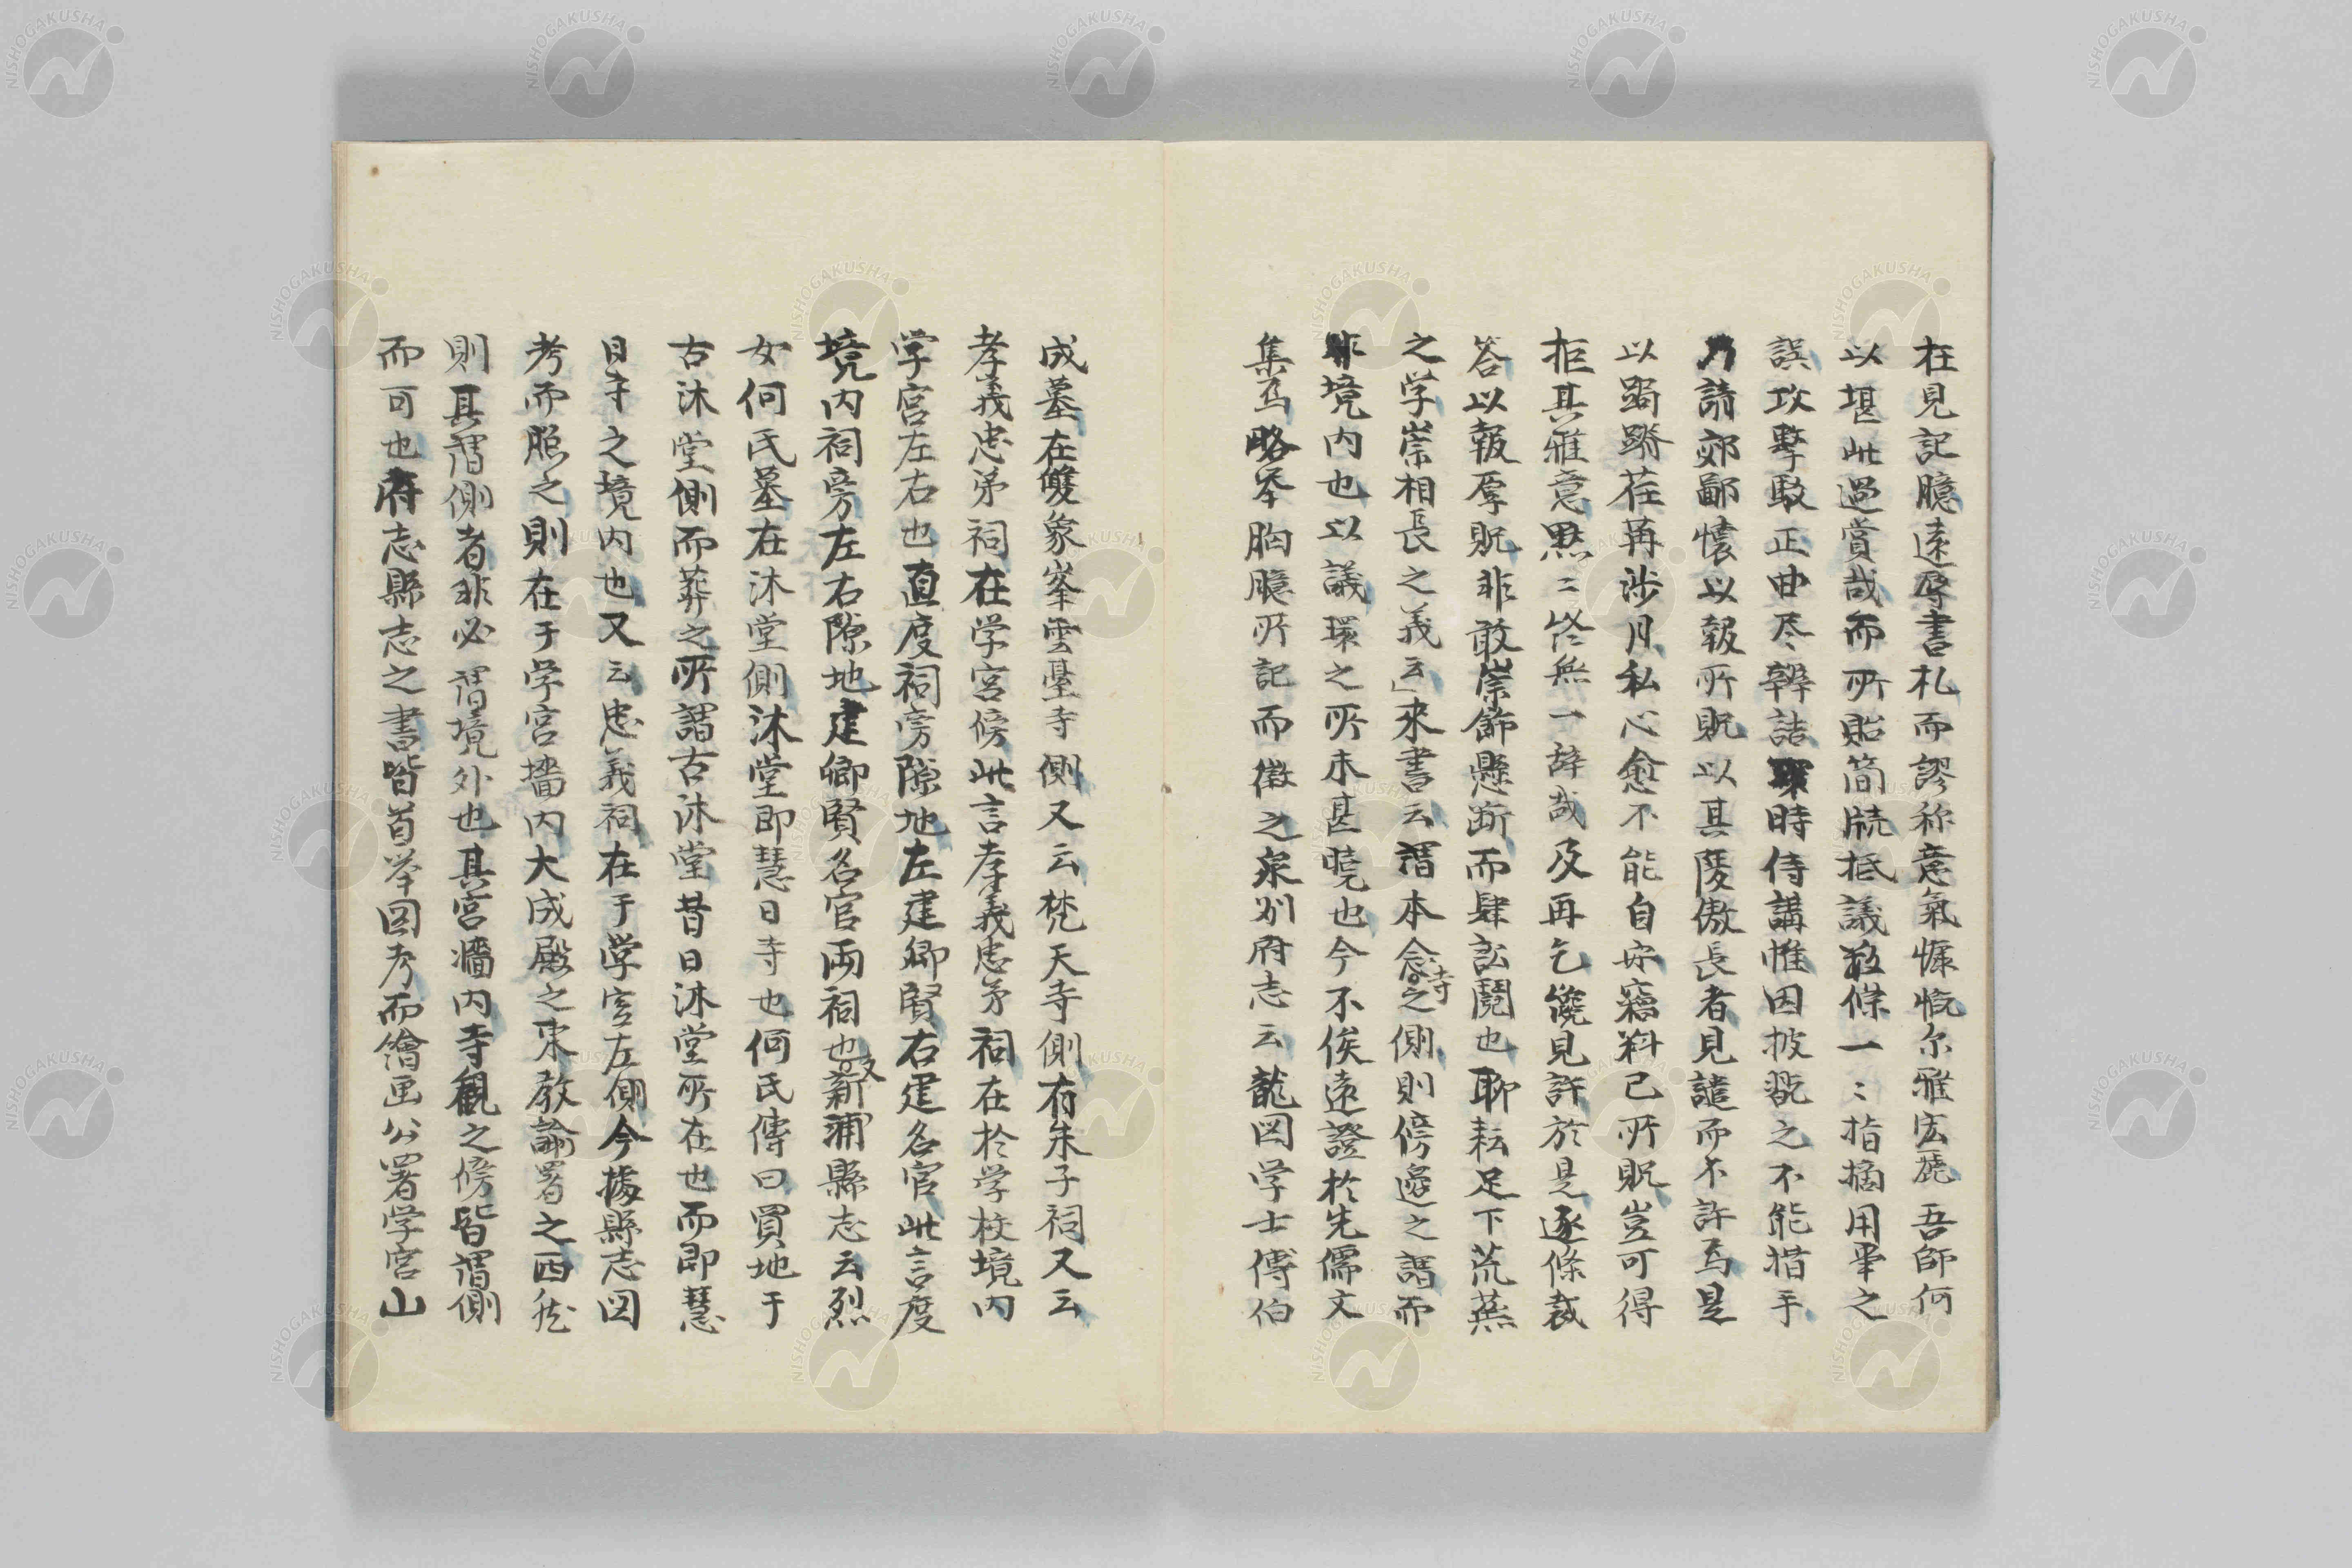 在見記臆遠辱書札而謬称意氣慷慨尓雅宏麗吾師何
以堪此過賞哉而所貽簡牘抵議数條一〻指摘用畢之
誤攻撃駁正曲尽辨詰環時侍講惟因披翫之不能措手
乃請郊鄙懐以報所貺以其陵傲長者見譴而不許焉是
以跼蹐荏苒渉月私心愈不能自安竊料已所貺豈可得
拒其雅意黙〻終無一辞哉及再乞纔見許於是逐條裁
答以報厚貺非敢崇飾懸断而肆訟鬩也聊耘足下荒蕪
之学崇相長之義云」来書云謂本念寺之側則傍邉之謂而
非境内也以議環之所未甚暁也今不俟遠證於先儒文
集焉略挙胸臆所記而徴之泉州府志云龍図学士傅伯
成墓在雙象峯雲臺寺側又云梵天寺側有朱子祠又云
孝義忠弟祠在学宮傍此言孝義忠弟祠在於学校境内
学宮左右也直度祠旁隙地左建郷賢右建名官此言度
境内祠旁左右隙地建郷賢名官両祠也又新浦縣志云烈
女何氏墓在沐堂側沐堂即慧日寺也何氏傳曰買地于
古沐堂側而葬之所謂古沐堂昔日沐堂所在也而即慧
日寺之境内也又云忠義祠在于学宮左側今據縣志図
考而照之則在于学宮墻内大成殿之東教諭署之西然
則其謂側者非必謂境外也其宮墻内寺観之傍皆謂側
而可也府志縣志之書皆首挙図考而繪画公署学宮山